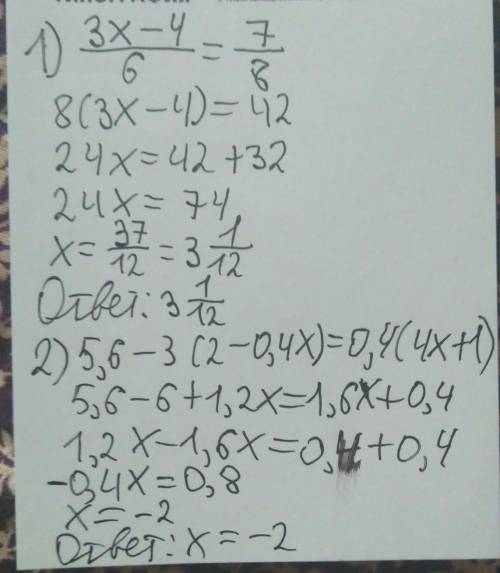 1) (3x-4)/6 = 7/8
8(3x-4)=42
24x=42+32
24x=74
x=37/12=3 1/12
Ответ: 3 1/12
2) 5,6-3(2-0,4x)=0,4(4x+1)
5,6-6+1,2x=1,6x+0,4
1,2x-1,6x=0,4+0,4
-0,4x=0,8
x=-2
Ответ: x=-2